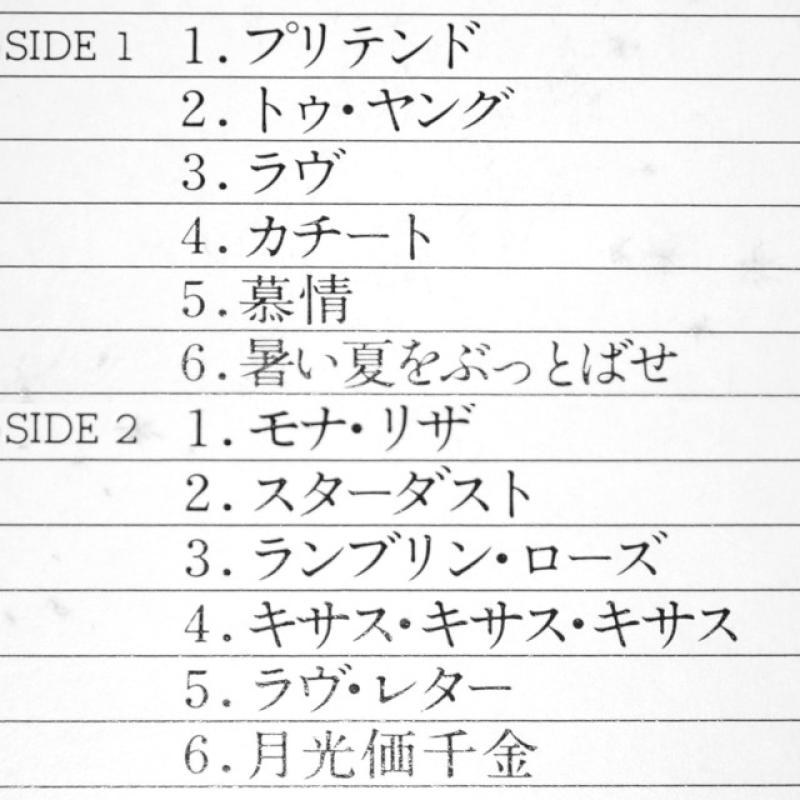 SIDE 1 1. プリテンド
2. トゥ・ヤング
3. ラヴ
4. カチート
5. 慕情
6. 暑い夏をぶっとばせ
SIDE 2 1. モナ・リザ
2. スターダスト
3. ランブリン・ローズ
4. キサス・キサス・キサス
5. ラヴ・レター
6. 月光価千金